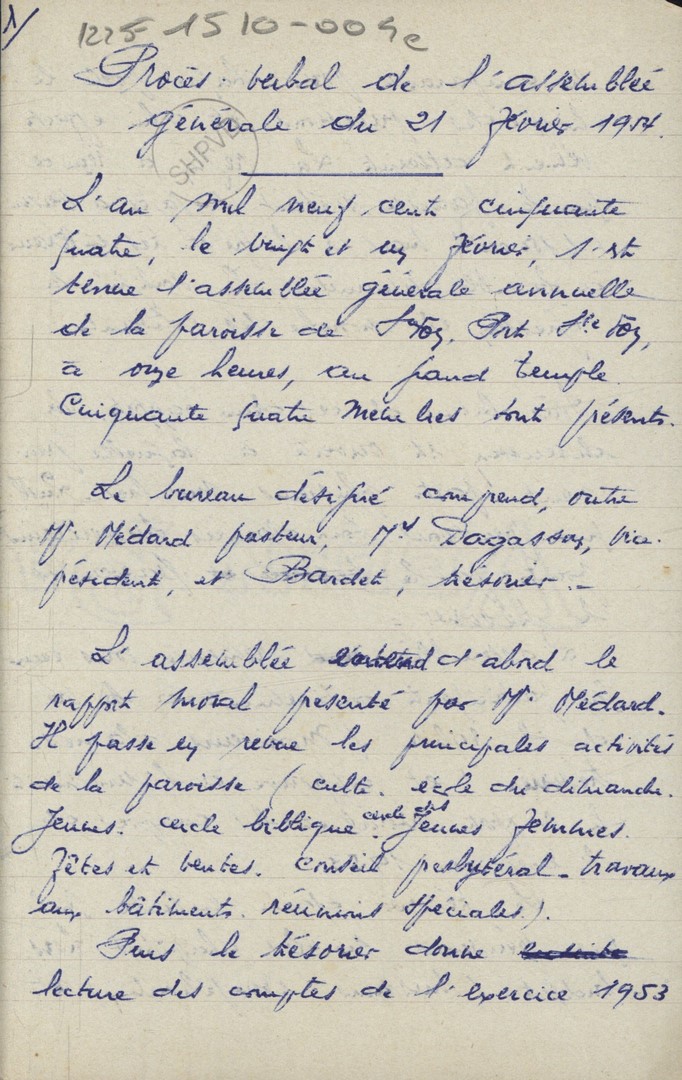 1/
1225-1510-004c
SHPVD
Procès-verbal de l'assemblée
générale du 21 février 1954.
L'an mil neuf cent cinquante
quatre, le vingt et un février, s'est
tenue l'assemblée générale annuelle
de la paroisse de Ste Foy, Port Ste Foy,
à onze heures, au grand temple.
Cinquante quatre membres sont présents.
Le bureau désigné comprend, outre
Mr Médard pasteur, Mrs Dagassan, vice-
président, et Bardet, trésorier.-
L'assemblée entend d'abord le
rapport moral présenté par Mr Médard.
Il passe en revue les principales activités
de la paroisse (culte. école du dimanche.
Jeunes. cercle biblique. cercle des Jeunes femmes.
fêtes et ventes. conseil presbytéral - travaux
aux bâtiments. réunions spéciales).
Puis le trésorier donne
lecture des comptes de l'exercice 1953